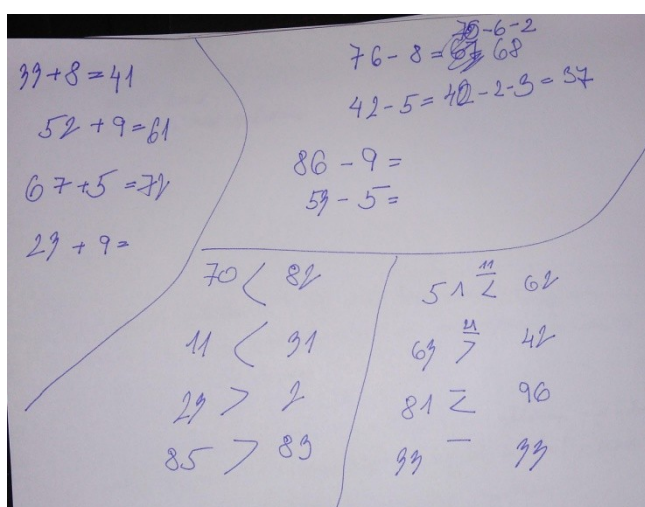 33+8=41
52+9=61
67+5=72
23+9=
76-6-2
76-8= 68
42-5=42-2-3=37
86-9=
53-5=
70 < 82
11 < 31
23 > 2
85 > 83
11
51 < 62
21
63 > 42
81 < 96
33 = 33